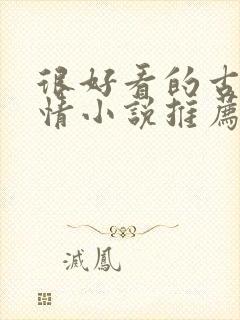 很好看的古
情小説推薦
滅鳳